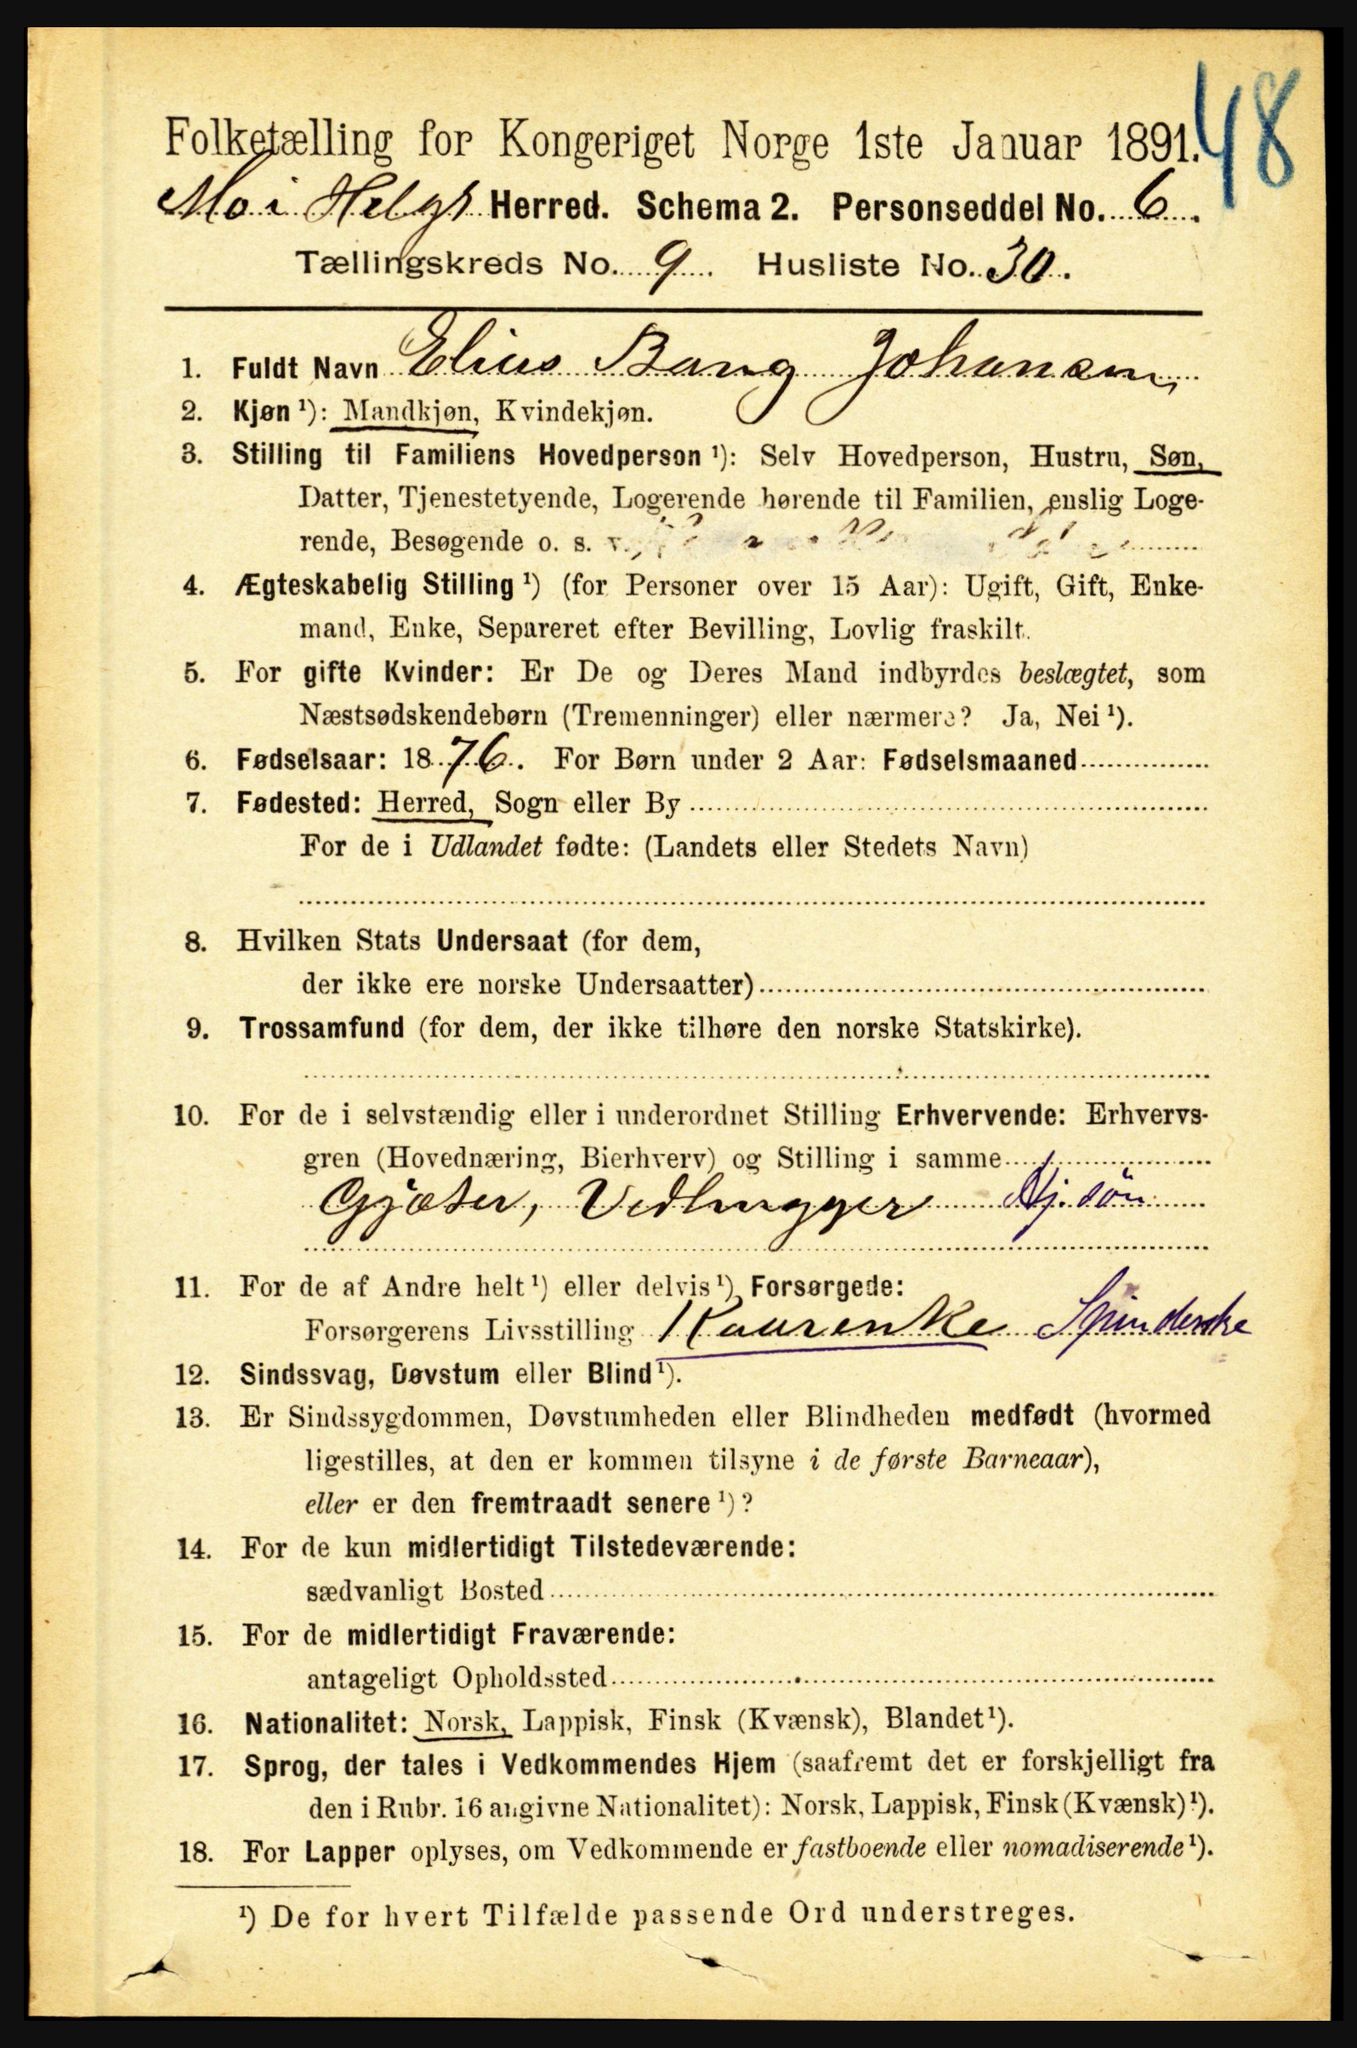 48
Folketælling for Kongeriget Norge 1ste Januar 1891.
Mo i Helgl Herred. Schema 2. Personseddel No. 6.
Tællingskreds No. 9. Husliste No. 30.
1. Fuldt Navn Elius Bang Johansen,
2. Kjøn ¹): Mandkjøn, Kvindekjøn.
3. Stilling til Familiens Hovedperson ¹): Selv Hovedperson, Hustru, Søn,
Datter, Tjenestetyende, Logerende hørende til Familien, enslig Loge-
rende, Besøgende o. s. v.
4. Ægteskabelig Stilling ¹) (for Personer over 15 Aar): Ugift, Gift, Enke-
mand, Enke, Separeret efter Bevilling, Lovlig fraskilt.
5. For gifte Kvinder: Er De og Deres Mand indbyrdes beslægtet, som
Næstsødskendebørn (Tremenninger) eller nærmere? Ja, Nei ¹).
6. Fødselsaar: 1876. For Børn under 2 Aar: Fødselsmaaned
7. Fødested: Herred, Sogn eller By
For de i Udlandet fødte: (Landets eller Stedets Navn)
8. Hvilken Stats Undersaat (for dem,
der ikke ere norske Undersaatter)
9. Trossamfund (for dem, der ikke tilhøre den norske Statskirke).
10. For de i selvstændig eller i underordnet Stilling Erhvervende: Erhvervs-
gren (Hovednæring, Bierhverv) og Stilling i samme
Gjæter, Vedhugger Hj. søn
11. For de af Andre helt ¹) eller delvis ¹) Forsørgede:
Forsørgerens Livsstilling Kaarenke Spinderske
12. Sindssvag, Døvstum eller Blind ¹).
13. Er Sindssygdommen, Døvstumheden eller Blindheden medfødt (hvormed
ligestilles, at den er kommen tilsyne i de første Barneaar),
eller er den fremtraadt senere ¹)?
14. For de kun midlertidigt Tilstedeværende:
sædvanligt Bosted
15. For de midlertidigt Fraværende:
antageligt Opholdssted
16. Nationalitet: Norsk, Lappisk, Finsk (Kvænsk), Blandet ¹).
17. Sprog, der tales i Vedkommendes Hjem (saafremt det er forskjelligt fra
den i Rubr. 16 angivne Nationalitet): Norsk, Lappisk, Finsk (Kvænsk) ¹).
18. For Lapper oplyses, om Vedkommende er fastboende eller nomadiserende ¹).
¹) De for hvert Tilfælde passende Ord understreges.